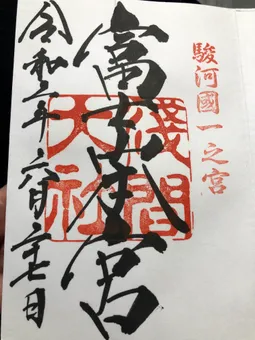 駿河國一之宮
富士山本宮
淺間大社
令和二年六月廿七日